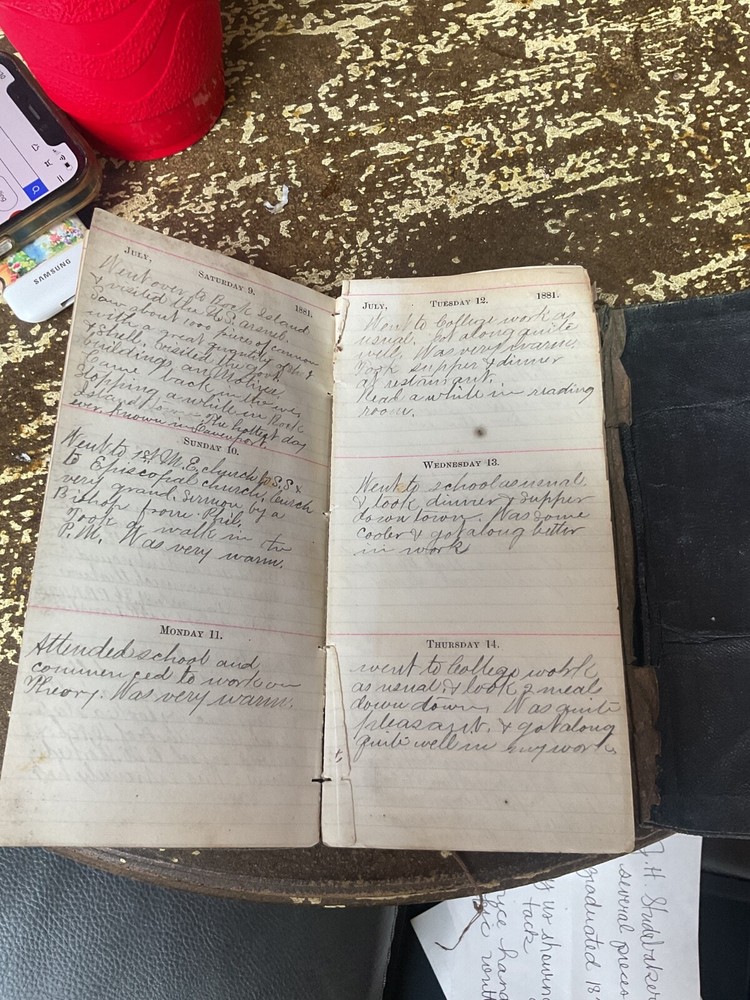 SAMSUNG
JULY, SATURDAY 9. 1881.
Went over to Rock Island
& visited the U.S. arsenal.
Saw about 1000 pieces of cannon
with a great quantity of shot &
shell. Visited the gov.
buildings
Came back in the eve
stopping a while in Rock
Island The hottest day
ever known in Davenport.
SUNDAY 10.
Went to 1st M.E. church S.S &
to Episcopial church, Church
very grand. Sermon by a
Bishop from Phil.
Took a walk in the
P.M. Was very warm.
MONDAY 11.
Attended school and
commenced to work on
Theory. Was very warm.
JULY, TUESDAY 12. 1881.
Went to College work as
usual, got along quite
well. Was very warm.
Took supper & dinner
at restaurant.
Read a while in reading
room.
WEDNESDAY 13.
Went to school as usual
& took dinner & supper
down town. Was some
cooler & got along better
in work
THURSDAY 14.
went to College work
as usual & took 2 meals
down down. Was quite
pleasant. & got along
quite well in my work.
J. H. Studebaker
several pieces
graduated 18
us showing
tack
hand